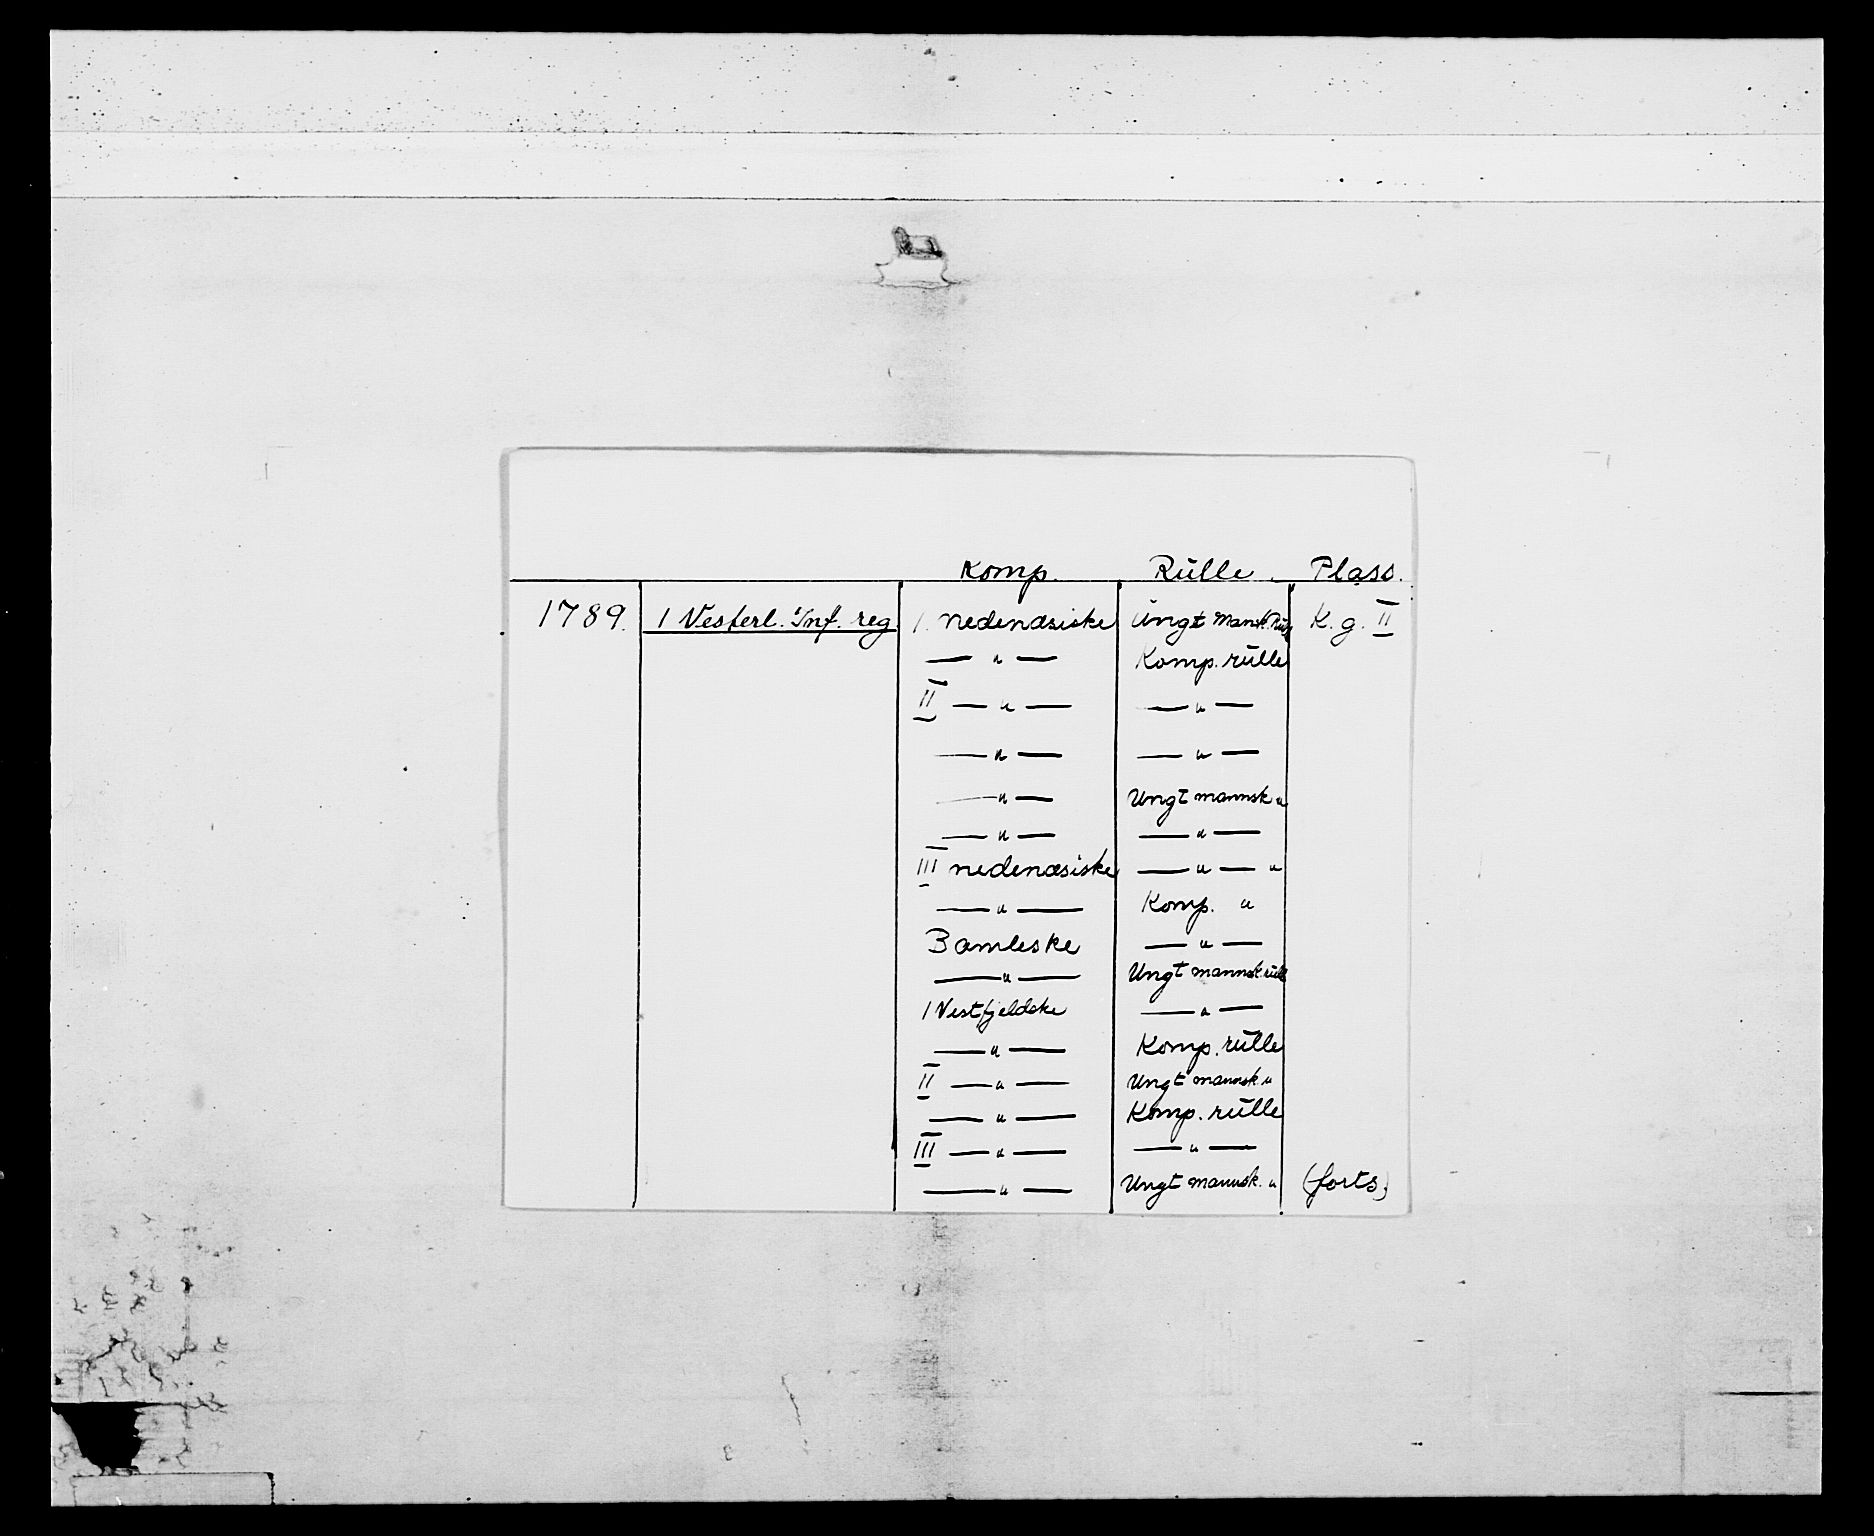 Komp. Rülle Plass.
1789. 1 Vesterl. Inf. reg. 1. nedenæsiske Ungt Mansk. K. g. II
— " — Komp. rülle
II — " — — " —
— " — — " —
— " — Ungt mannsk "
— " — — " —
III nedenæsiske — " — "
— " — Komp. "
Bamleske — " —
— " — Ungt mannsk rülle
1 Vestfjeldske — " —
— " — Komp. rülle
II — " — Ungt mannsk "
— " — Komp. rülle
III — " — — " —
— " — Ungt mannsk. " (forts.)